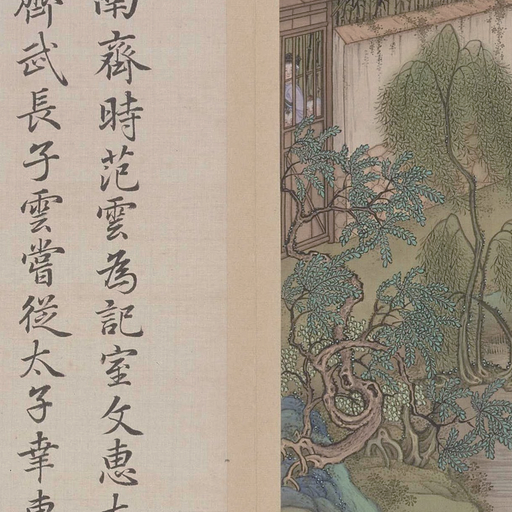 南齊時范雲為記室文惠太
齊武長子雲嘗從太子幸東